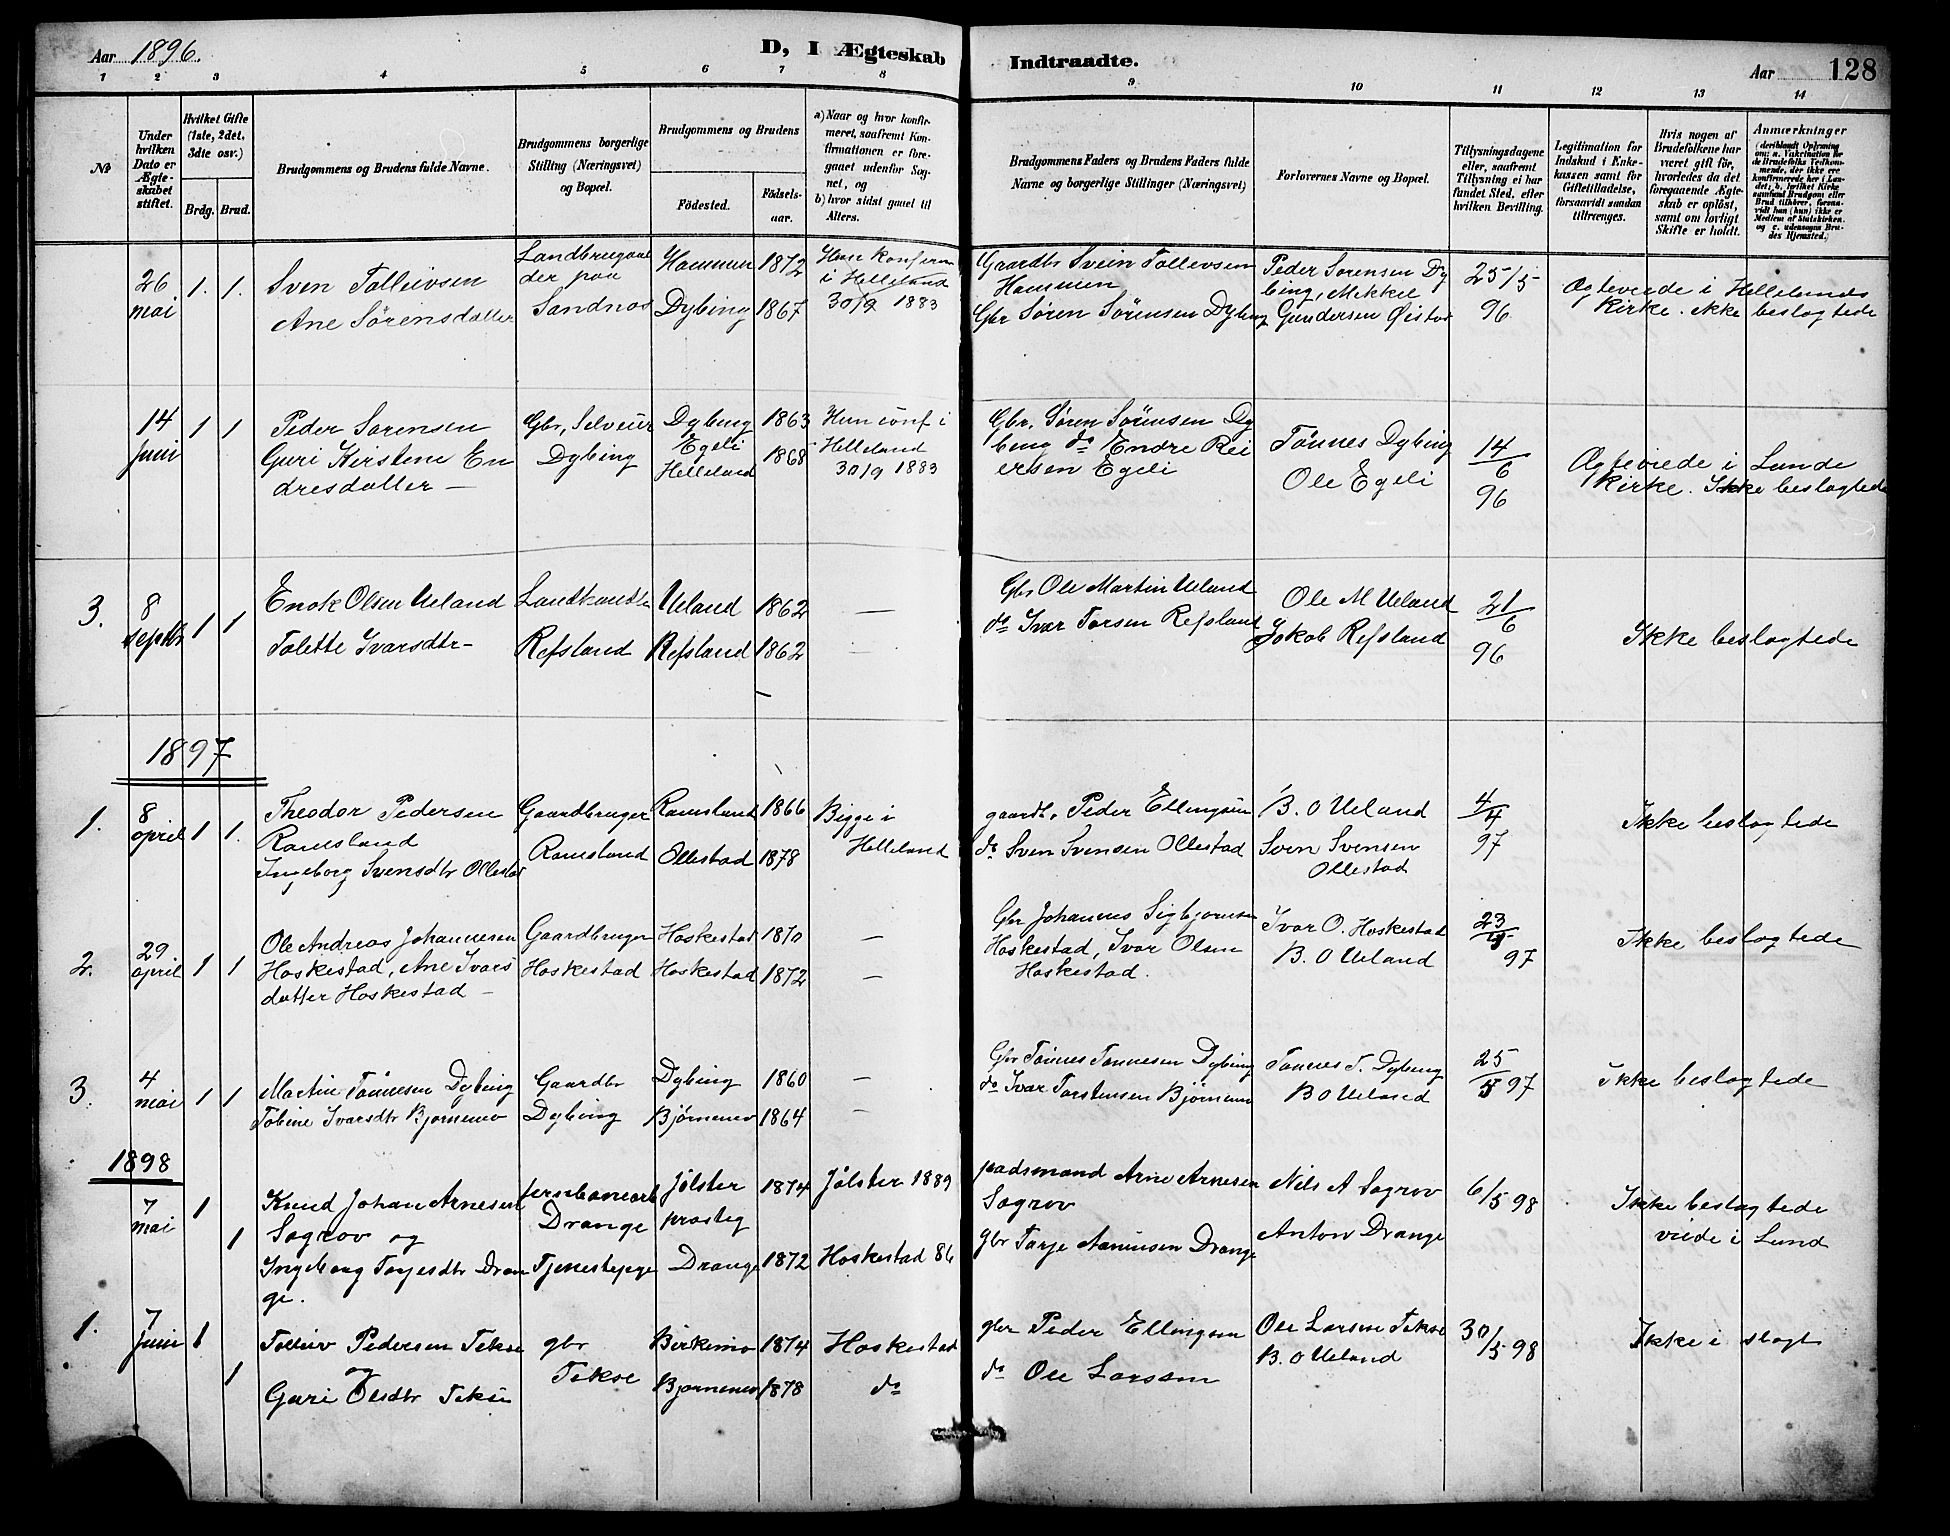 Aar 1896.
D, I Ægteskab Indtraadte.
Aar 128
1 2 3 4 5 6 7 8 9 10 11 12 13 14
№
Under hvilken Dato er Ægteskabet stiftet.
Hvilket Gifte (1ste, 2det, 3die osv.)
Brdg. Brud.
Brudgommens og Brudens fulde Navne.
Brudgommens borgerlige Stilling (Næringsvei) og Bopæl.
Brudgommens og Brudens
Fødested. Fødselsaar.
a) Naar og hvor konfirmeret, saafremt Konfirmationen er foregaaet udenfor Sognet, og
b) hvor sidst gaaet til Alters.
Brudgommens Faders og Brudens Faders fulde Navne og borgerlige Stillinger (Næringsvei)
Forlovernes Navne og Bopæl.
Tillysningsdagene eller, saafremt Tillysning ei har fundet Sted, efter hvilken Bevilling.
Legitimation for Indskud i Enkekassen samt for Giftetilladelse, forsaavidt saadan tiltrænges.
Hvis nogen af Brudefolkene har været gift før, hvorledes da det foregaaende Ægteskab er opløst, samt om lovligt Skifte er holdt.
Anmærkninger
26 mai 1. 1.
Sven Tolleivsen
Ane Sørensdatter
Sandnos
Hammen 1872
Dybing 1867
Han konferm
i Helleland
30/9 1883
Gaardbr Svein Tollevsen
Hammen
Gbr Søren Sørensen Dybing
Peder Sorensen Dy
bing, Mikkel
Gundersen
25/5
96
Ægteviede i Hellelands
Kirke. ikke beslagtede
14 Juni 1 1
Peder Sorensen
Guri Kirstine En
dresdatter –
Gbr, Selveier
Dybing
Dybing 1863
Egeli
Helleland 1868
Hun conf i
Helleland
30/9 1883
Gbr. Søren Sørensen Dy
bing do Endre Rei
ersen Egeli
Tönnes Dybing
Ole Egeli
14/6
96
Ægteviede i Lunde
Kirke. Ikke beslagtede
3. 8 septbr 1 1
Enok Olsen Ueland
Tolette Ivarsdtr –
Landhandler
Refsland
Ueland 1862
Refsland 1862
—
Gbr Ole Martin Ueland
do Ivar Torsen Refsland
Ole M Ueland
Jakob Refsland
21/6
96
Ikke beslagtede
1897
1. 8 april 1 1.
Theodor Pedersen
Ramsland
Ingeborg Svensdtr Ollestad
Gaardbruger
Ramsland
Ramsland 1866
Ollestad 1878
Begge i
Helleland
gaardb, Peder Ellingsen
do Sven Svensen Ollestad
B. O Ueland
Sven Svensen
Ollestad
4/4
97
Ikke beslagtede
2. 29 april 1 1
Ole Andreas Johannesen
Hoskestad, Ane Ivars
datter Hoskestad –
Gaardbruger
Hoskestad
Hoskestad 1870 —
Hoskestad 1872 —
Gbr Johannes Sigbjornsen
Hoskestad, Ivar Olsen
Hoskestad.
Ivar O. Hoskestad
B. O Ueland
23
97
Ikke beslagtede
3. 4 mai 1 1
Martin Tönnesen Dybing
Tobine Ivarsdtr Bjornemo
Gaardbr
Dybing
Dybing 1860 —
Bjørnemo 1864 —
Gbr Tönnes Tonnesen Dybing
do Ivar Torstensen Bjørnemo
Tonnes T. Dybing
B O Ueland
25
97
Ikke beslagtede
1898
7 mai 1 1
Knud Johan Arnesen
Sogrov og
Ingeborg Torjesdtr Dran
ge.
jernbanearb
Drange
Tjenestepige
Jølster 1874
prasteg
Drange 1872
Jölster 1889
Hoskestad 86
padsmand Arne Arnesen
Sogrov
gbr Torje Aanensen Drange
Nils A Sogrov
Anton Drange
6/5 98
Ikke beslagtede
viede i Lund
1. 7 Juni 1 1
Tolleiv Pedersen Tekse
og
Guri Olsdtr Tekse
gbr
Tekse
Birkemo 1874
Bjornemo 1878
Hoskestad
do
gbr Peder Ellingsen
do Ole Larsen
Ole Larsen Tekse
B. O Ueland
30/5 98
Ikke i slagt